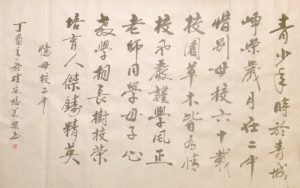 青少年時於青城
崢嶸歲月在二中
惜別母校六十載
校園草木皆有情
校風嚴謹學風正
老師同學母子心
教學相長樹校榮
培育人傑鑄精英
憶母校二中
丁酉